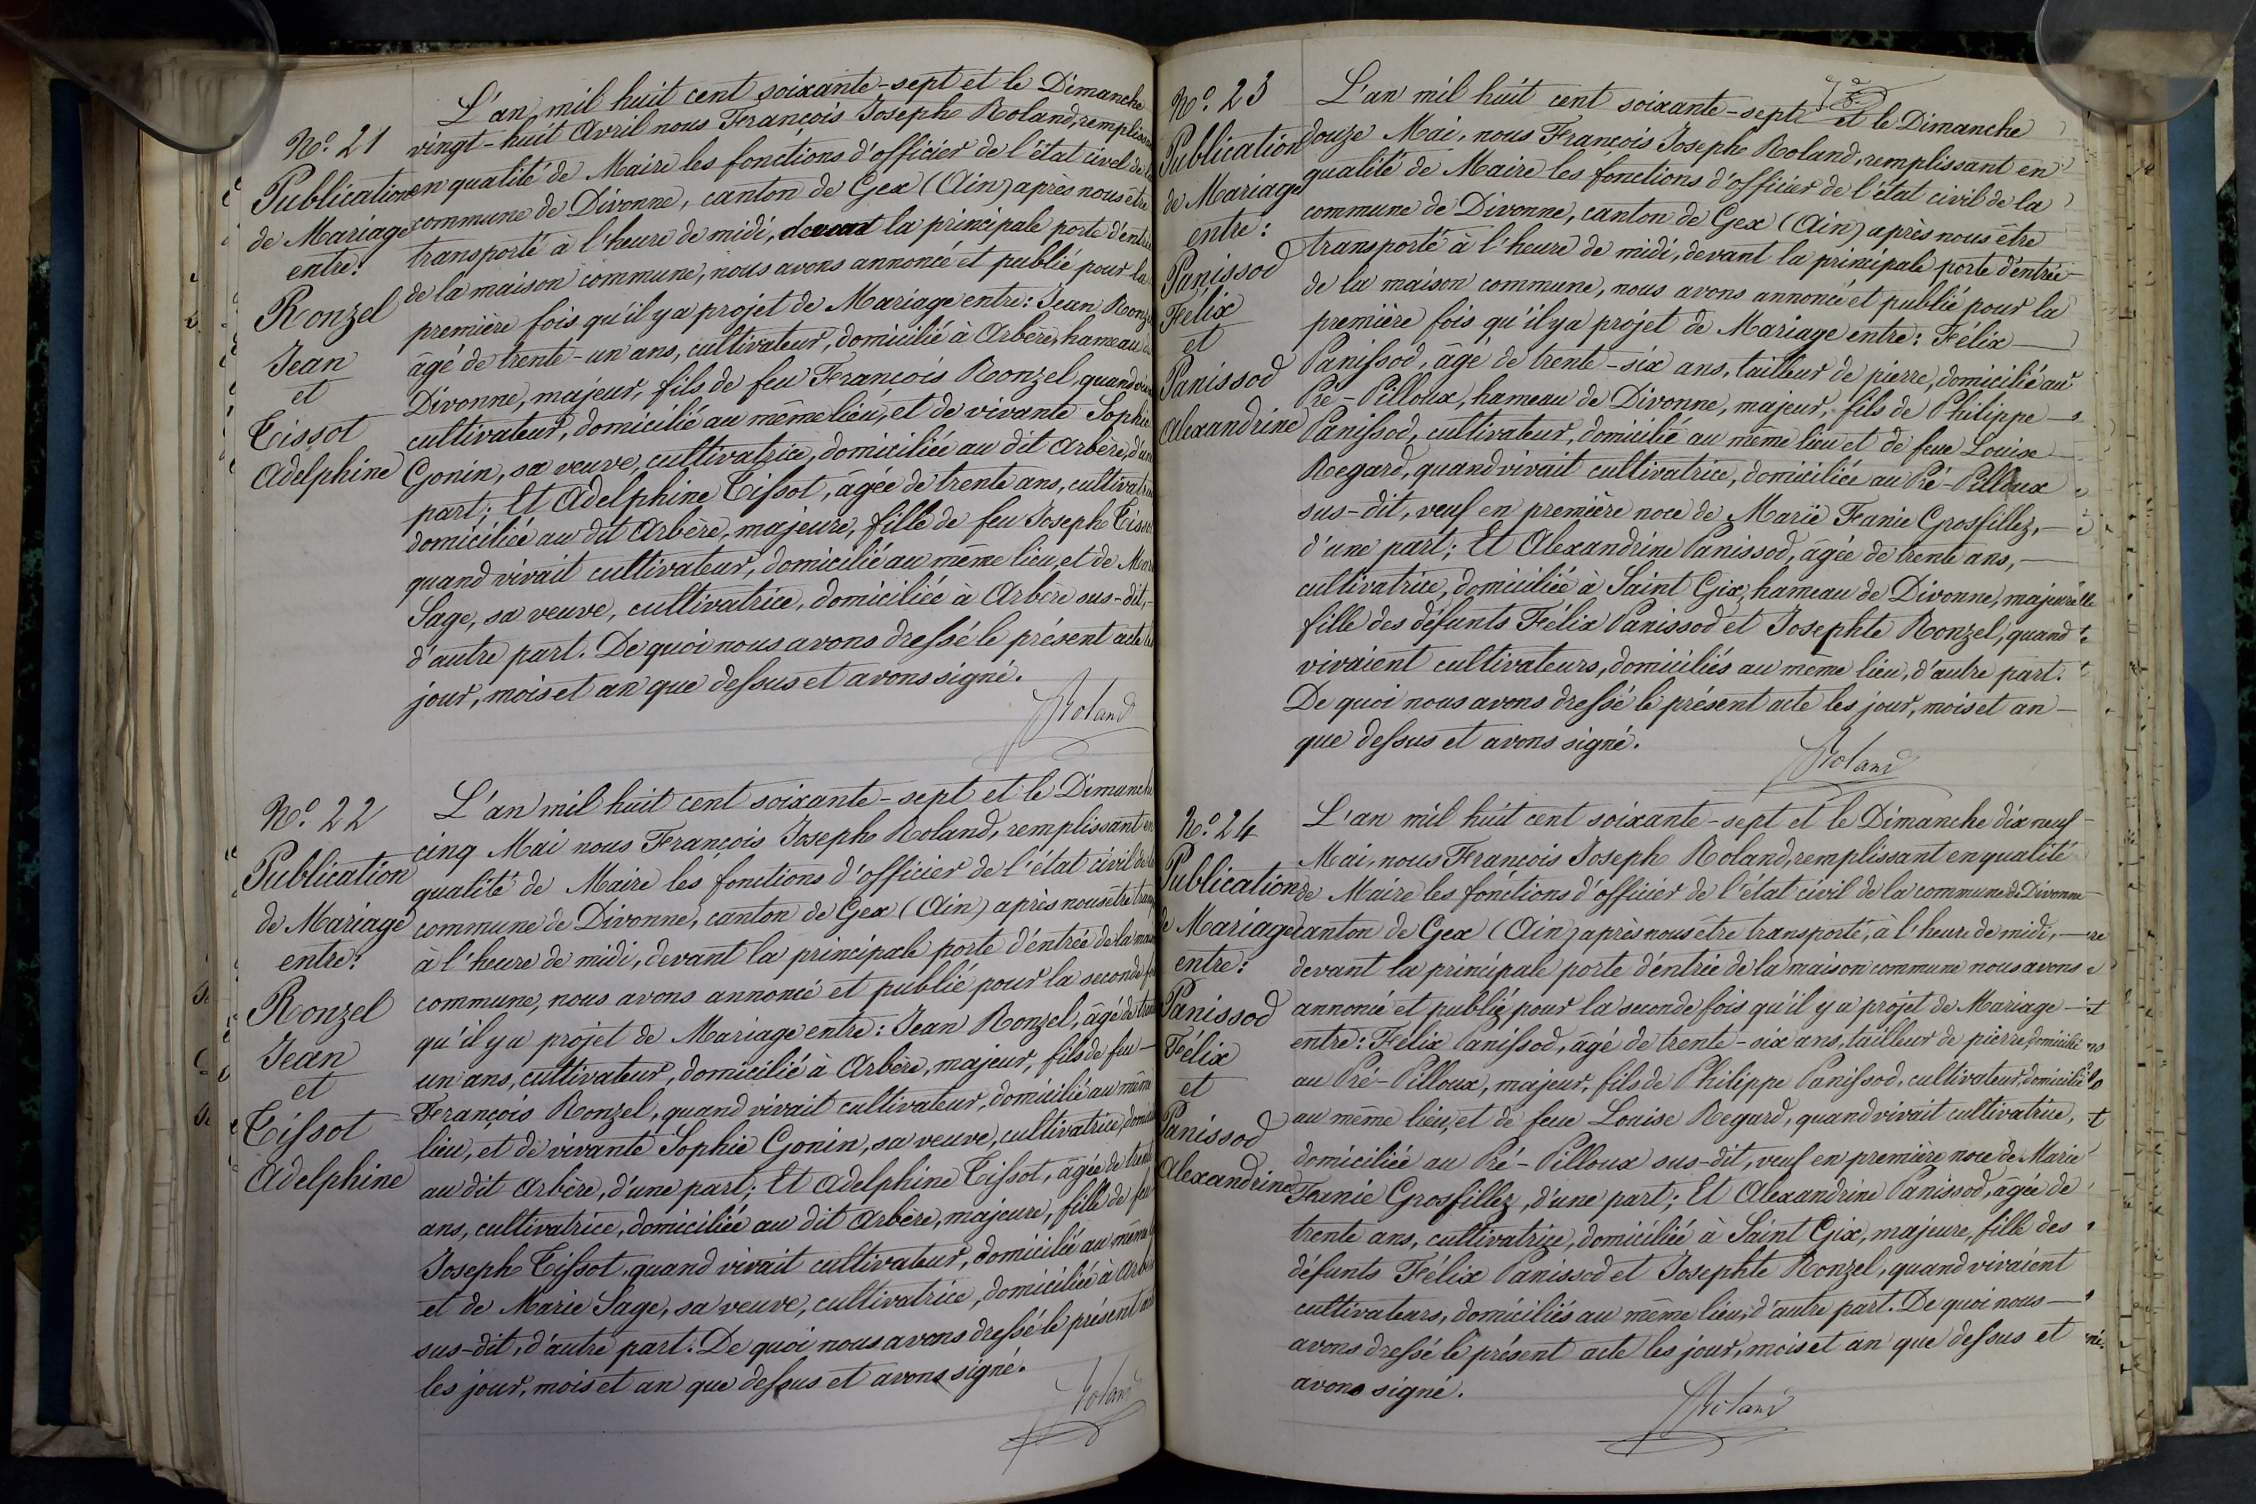 N.° 21
Publication
de Mariage
entre:
Ronzel
Jean
et
Tissot
Adelphine
L'an mil huit cent soixante-sept et le Dimanche
vingt-huit Avril nous François Joseph Roland, remplissant
en qualité de Maire les fonctions d'officier de l'état civil de la
commune de Divonne, canton de Gex (Ain) après nous être
transporté à l'heure de midi, devant la principale porte d'entrée
de la maison commune, nous avons annoncé et publié pour la
première fois qu'il y a projet de Mariage entre: Jean Ronzel
âgé de trente-un ans, cultivateur, domicilié à Arbère, hameau de
Divonne, majeur, fils de feu François Ronzel, quand vivait
cultivateur, domicilié au même lieu, et de vivante Sophie
Gonin, sa veuve, cultivatrice, domiciliée au dit Arbère, d'une
part; Et Adelphine Tissot, âgée de trente ans, cultivatrice
domiciliée au dit Arbère, majeure, fille de feu Joseph Tissot
quand vivait cultivateur, domicilié au même lieu, et de Marie
Sage, sa veuve, cultivatrice, domiciliée à Arbère sus-dit,
d'autre part. De quoi nous avons dressé le présent acte les
jour, mois et an que dessus et avons signé.
Roland
N.° 22
Publication
de Mariage
entre:
Ronzel
Jean
et
Tissot
Adelphine
L'an mil huit cent soixante-sept et le Dimanche
cinq Mai nous François Joseph Roland, remplissant en
qualité de Maire les fonctions d'officier de l'état civil de la
commune de Divonne, canton de Gex (Ain) après nous être
à l'heure de midi, devant la principale porte d'entrée de la maison
commune, nous avons annoncé et publié pour la seconde fois
qu'il y a projet de Mariage entre: Jean Ronzel, âgé de trente
un ans, cultivateur, domicilié à Arbère, majeur, fils de feu
François Ronzel, quand vivait cultivateur, domicilié au même
lieu, et de vivante Sophie Gonin, sa veuve, cultivatrice,
au dit Arbère, d'une part; Et Adelphine Tissot, âgée de trente
ans, cultivatrice, domiciliée au dit Arbère, majeure, fille de feu
Joseph Tissot, quand vivait cultivateur, domicilié au même
et de Marie Sage, sa veuve, cultivatrice, domiciliée à Arbère
sus-dit, d'autre part. De quoi nous avons dressé le présent acte
les jour, mois et an que dessus et avons signé.
Roland
N.° 23
Publication
de Mariage
entre:
Panissod
Félix
et
Panissod
Alexandrine
L'an mil huit cent soixante-sept et le Dimanche
douze Mai, nous François Joseph Roland, remplissant en
qualité de Maire les fonctions d'officier de l'état civil de la
commune de Divonne, canton de Gex (Ain) après nous être
transporté à l'heure de midi, devant la principale porte d'entrée
de la maison commune, nous avons annoncé et publié pour la
première fois qu'il y a projet de Mariage entre: Félix
Panissod, âgé de trente-six ans, tailleur de pierre, domicilié au
Pré-Pilloux, hameau de Divonne, majeur, fils de Philippe
Panissod, cultivateur, domicilié au même lieu et de feue Louise
Regard, quand vivait cultivatrice, domiciliée au Pré-Pilloux
sus-dit, veuf en première noce de Marie Fanie Grosfillez,
d'une part; Et Alexandrine Panissod, âgée de trente ans,
cultivatrice, domiciliée à Saint Gix, hameau de Divonne, majeure
fille des défunts Félix Panissod et Josephte Ronzel, quand
vivaient cultivateurs, domiciliés au même lieu, d'autre part.
De quoi nous avons dressé le présent acte les jour, mois et an
que dessus et avons signé.
Roland
N.° 24
Publication
de Mariage
entre:
Panissod
Félix
et
Panissod
Alexandrine
L'an mil huit cent soixante-sept et le Dimanche dix neuf
Mai, nous François Joseph Roland, remplissant en qualité
de Maire les fonctions d'officier de l'état civil de la commune de Divonne
canton de Gex (Ain) après nous être transporté, à l'heure de midi,
devant la principale porte d'entrée de la maison commune nous avons
annoncé et publié pour la seconde fois qu'il y a projet de Mariage
entre: Félix Panissod, âgé de trente-six ans, tailleur de pierre, domicilié
au Pré-Pilloux, majeur, fils de Philippe Panissod, cultivateur, domicilié
au même lieu, et de feue Louise Regard, quand vivait cultivatrice,
domiciliée au Pré-Pilloux sus-dit, veuf en première noce de Marie
Fanie Grosfillez, d'une part; Et Alexandrine Panissod, âgée de
trente ans, cultivatrice, domiciliée à Saint Gix, majeure, fille des
défunts Félix Panissod et Josephte Ronzel, quand vivaient
cultivateurs, domiciliés au même lieu, d'autre part. De quoi nous
avons dressé le présent acte les jour, mois et an que dessus et
avons signé.
Roland